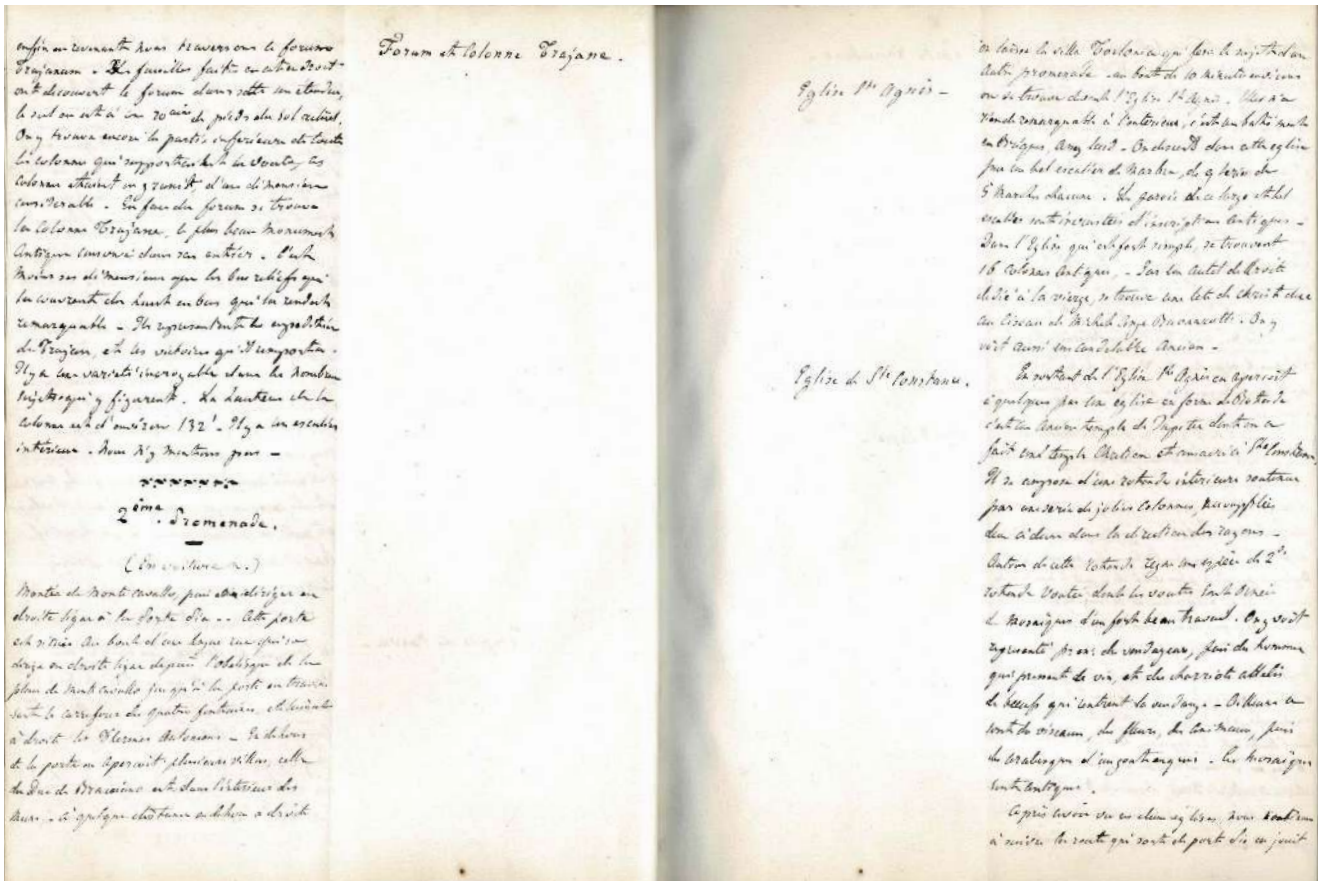 enfin en revenant nous traversons le forum
Trajanum. Les fouilles faites en cet endroit
ont découvert le forum dans toute son étendue,
le sol en est à une 20aine de pieds du sol actuel.
On y trouve encore la partie inférieure de toutes
les colonnes qui supportaient la voute, ces
colonnes étaient en granit, d'une dimension
considerable. En face du forum se trouve
la Colonne Trajane, le plus beau monument
Antique conservé dans son entier. C'est
moins ses dimensions que les bas reliefs qui
la couvrent du haut en bas qui la rendent
remarquable - Ils representent les expeditions
de Trajan, et les victoires qu'il remporta.
Il y a une variété incroyable dans les nombreux
sujets qui y figurent. La hauteur de la
colonne est d'environ 132'. Il y a un escalier
interieur. Nous n'y montons pas -
2ème Promenade.
(En voiture.)
Montée de Monte Cavallo, puis dirigée en
droite ligne à la Porte Pia -. Cette porte
est située au bout d'une longue rue qui se
dirige en droite ligne depuis l'obelisque de la
place de Monte Cavallo jusqu'à la porte en traversant
le carrefour des quatre fontaines, et laissant
à droite les Thermes - En dehors
de la porte on aperçoit plusieurs villas, celle
du Duc de Bracciano est dans l'interieur des
murs - à quelque distance en dehors à droite
Forum et Colonne Trajane.
Eglise Ste Agnès -
Eglise de Ste Constance.
on laisse la villa Torlonia qui fera le sujet d'un
autre promenade - au bout de 10 minutes environ
on se trouve devant l'Eglise Ste Agnès. Elle n'a
rien de remarquable à l'exterieur, c'est un batiment
en briques, assez laid - On descend dans cette eglise
par un bel escalier de marbre, de 9 series de
5 marches chacune. Les parois de ce large et bel
escalier sont incrustées d'inscriptions antiques -
Dans l'Eglise qui est fort simple, se trouvent
16 colonnes Antiques, - Sur un autel de droite
dédié à la vierge, se trouve une tête de christ due
au ciseau de Michel Ange Buonarotti. On y
voit aussi un candelabre Ancien -
En sortant de l'Eglise Ste Agnès on aperçoit
à quelques pas une eglise en forme de Rotonde
c'est un Ancien temple de dont on a
fait un temple Chretien et consacré à Ste Constance.
Il se compose d'une rotonde interieure soutenue
par une serie de jolies colonnes, accouplées
deux à deux dans la direction des rayons -
Autour de cette rotonde regne une espèce de 2de
rotonde voutée dont les voutes sont ornées
de mosaïques d'un fort beau travail. On y voit
representé des vendangeurs, puis des hommes
qui pressent le vin, et des charriots attelés
de boeufs qui rentrent la vendange - Ailleurs ce
sont des oiseaux, des fleurs, des animaux, puis
des arabesques d'un gout exquis - Ces mosaïques
sont antiques.
Après avoir vu ces deux églises, nous continuons
à suivre la route qui sort de porte Pia, on jouit